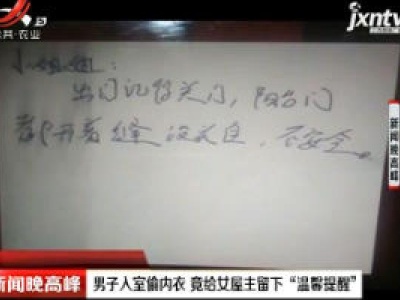 公共·农业
jxntv
小姐姐：
出门记得关门，阳台门
都开着缝没关自，不安全。
新闻晚高峰
新闻晚高峰
男子入室偷内衣 竟给女屋主留下“温馨提醒”